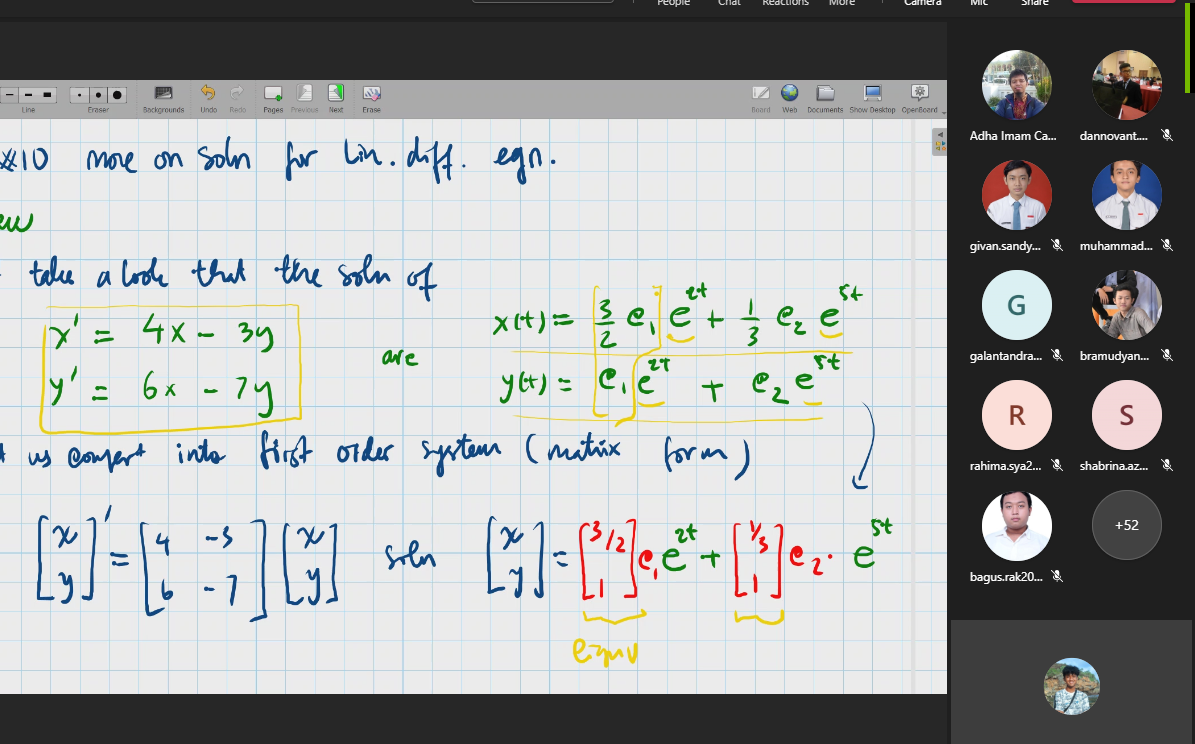 People Chat Reactions More Camera Mic Share
Line Eraser Backgrounds Undo Redo Pages Previous Next Erase Board Web Documents Show Desktop OpenBoard
#10 more on soln for Lin. diff. eqn.
ew
take a look that the soln of
x' = 4x - 3y
y' = 6x - 7y
are
x(t) = 3/2 c₁ e^2t + 1/3 c₂ e^5t
y(t) = c₁ e^2t + c₂ e^5t
us convert into first order system (matrix form)
[x y]' = [4 -3 6 -7] [x y] soln [x y] = [3/2 1] c₁ e^2t + [1/3 1] c₂ . e^5t
Adha Imam Ca...
dannovant...
givan.sandy...
muhammad...
G
galantandra...
bramudyan...
R
rahima.sya2...
S
shabrina.az...
bagus.rak20...
+52